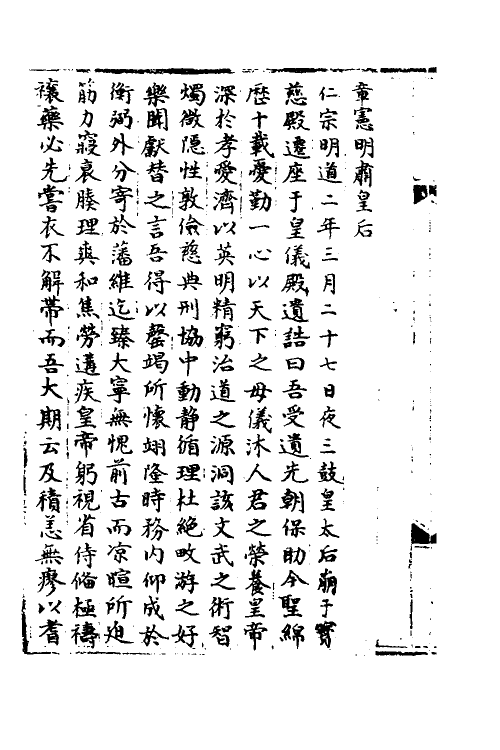 章憲明肅皇后
仁宗明道二年三月二十七日夜三鼓皇太后崩于寶
慈殿遷座于皇儀殿遺誥曰吾受遺先朝保助今聖綿
歷十載憂勤一心以天下之母儀沐人君之榮養皇帝
深於孝愛濟以英明精窮治道之源洞該文武之術智
燭微隱性敦儉慈典刑協中動静循理杜絕畋游之好
樂聞獻替之言吾得以罄竭所懷翊隆時務内仰成於
衡弼外分寄於藩維迄臻大寧無愧前古而凉暄所迫
筋力寖衰腠理爽和焦勞遘疾皇帝躬視省侍備極禱
禳藥必先嘗衣不解帶而吾大期云及積恙無瘳以耆